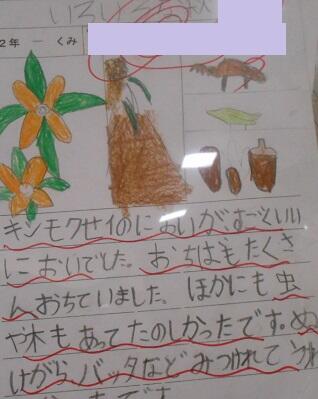 いろいろ
2年 一 くみ
キンモクセイのにおいが、すごくいい
においでした。おちばもたくさ
んおちていました。ほかにも虫
や木もあってたのしかったです。ぬ
けがら、バッタなどみつけれて